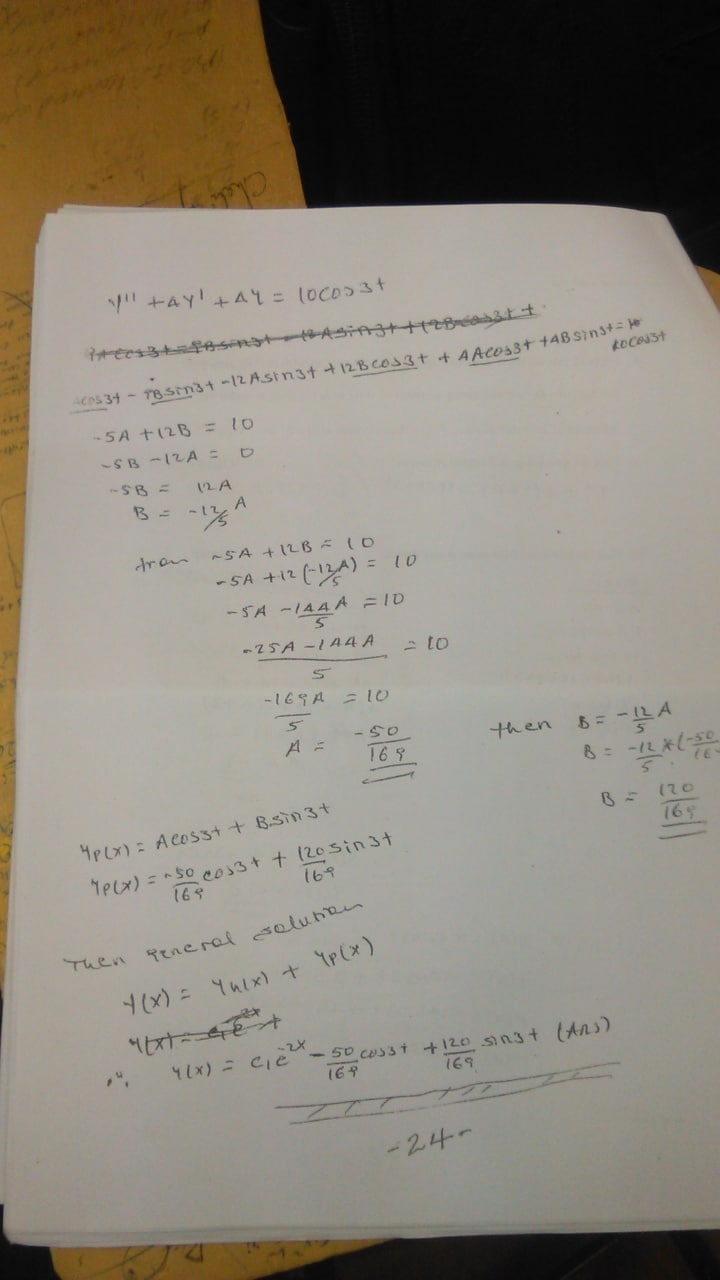 y'' + 4y' + 4y = 10cos3t
-9Acos3t - 9Bsin3t - 12Asin3t + 12Bcos3t +
Acos3t - 9Bsin3t - 12Asin3t + 12Bcos3t + 4Acos3t + 4Bsin3t = 10
10cos3t
-5A + 12B = 10
-5B - 12A = 0
-5B = 12A
B = -12/5 A
from -5A + 12B = 10
-5A + 12(-12A/5) = 10
-5A - 144A/5 = 10
(-25A - 144A)/5 = 10
-169A/5 = 10
A = -50/169
then B = -12/5 A
B = -12/5 × (-50/16
B = 120/169
yp(x) = Acos3t + Bsin3t
yp(x) = -50/169 cos3t + 120/169 sin3t
Then general solution
y(x) = yh(x) + yp(x)
y(x) = c₁e^-2x +
∴ y(x) = c₁e^-2x - 50/169 cos3t + 120/169 sin3t (Ans)
-24-